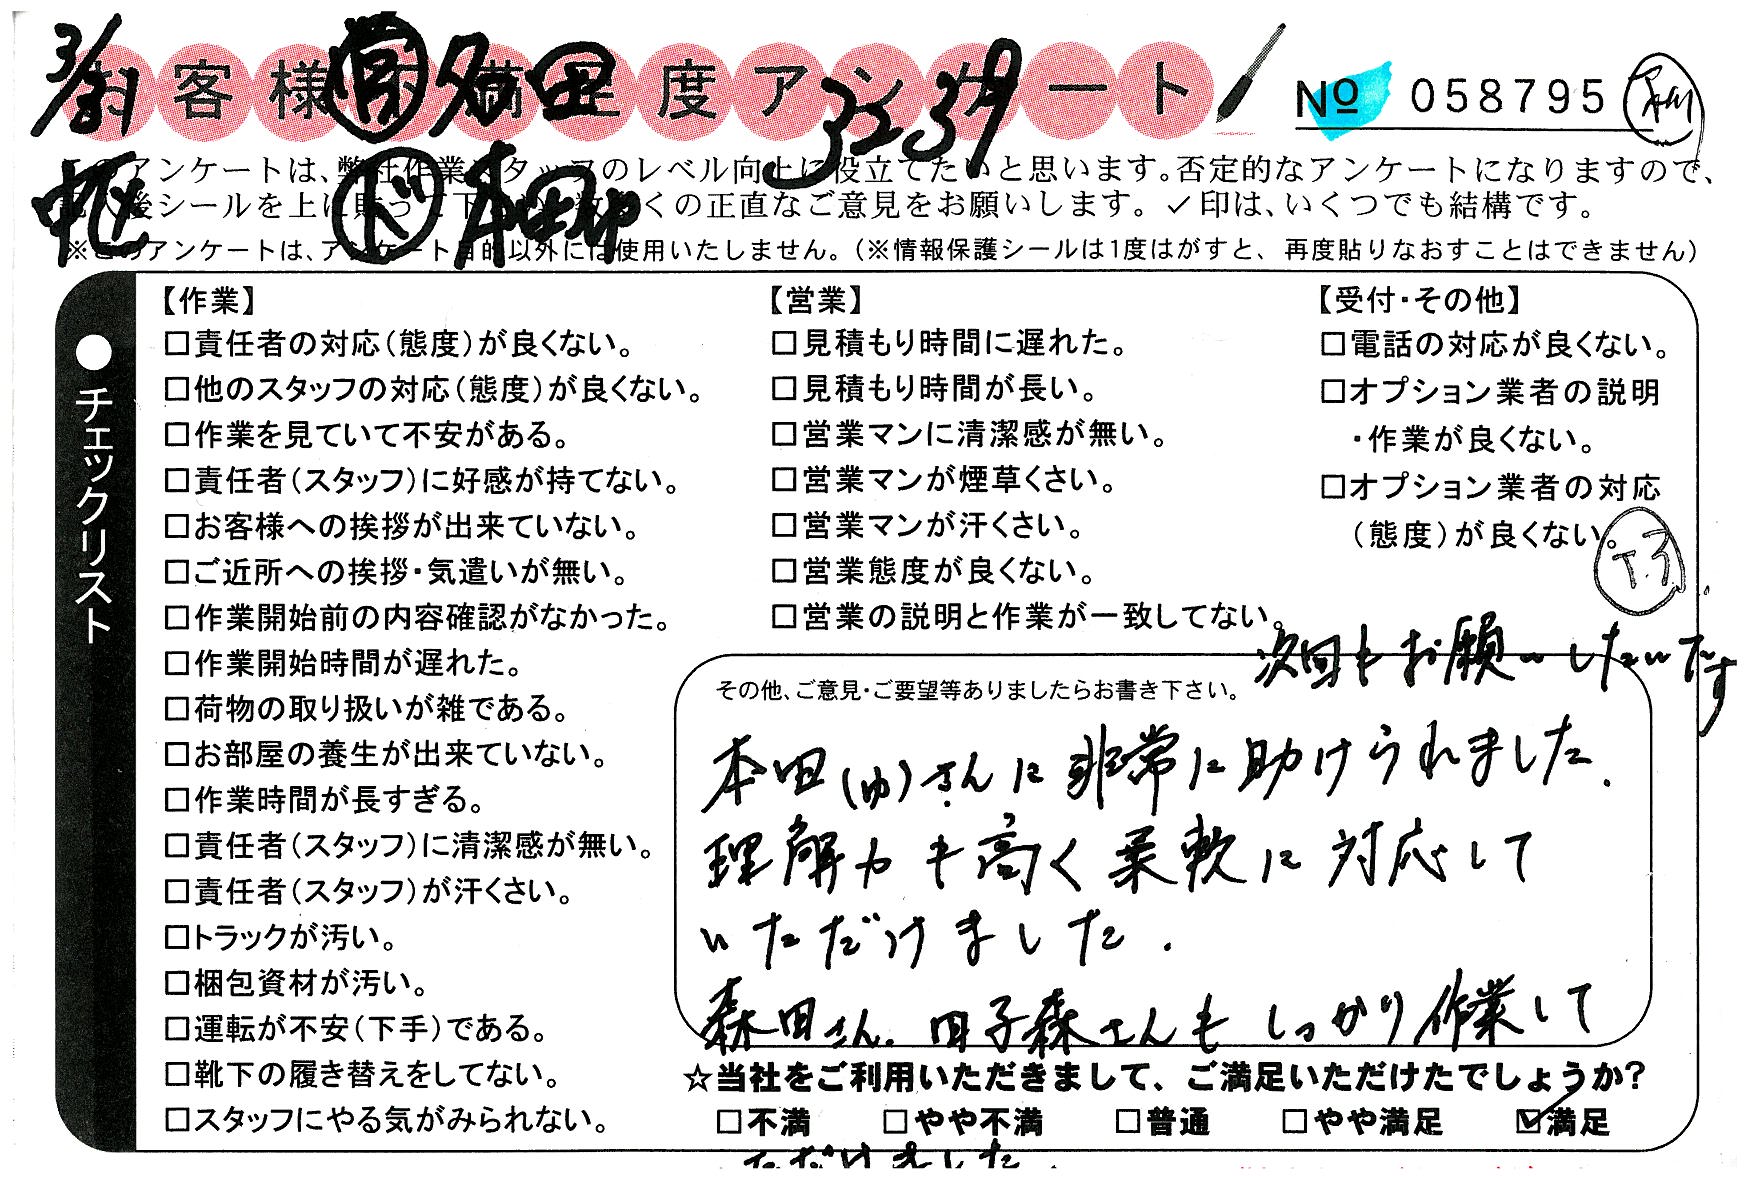 3/31 営 多田 3239
お客様満足度アンケート
№ 058795
このアンケートは、弊社作業スタッフのレベル向上に役立てたいと思います。否定的なアンケートになりますので、
記入後シールを上に貼って下さい。数多くの正直なご意見をお願いします。✓印は、いくつでも結構です。
※このアンケートは、アンケート目的以外には使用いたしません。(※情報保護シールは1度はがすと、再度貼りなおすことはできません)
中区 ド 本田ゆ
●チェックリスト
【作業】
□責任者の対応(態度)が良くない。
□他のスタッフの対応(態度)が良くない。
□作業を見ていて不安がある。
□責任者(スタッフ)に好感が持てない。
□お客様への挨拶が出来ていない。
□ご近所への挨拶・気遣いが無い。
□作業開始前の内容確認がなかった。
□作業開始時間が遅れた。
□荷物の取り扱いが雑である。
□お部屋の養生が出来ていない。
□作業時間が長すぎる。
□責任者(スタッフ)に清潔感が無い。
□責任者(スタッフ)が汗くさい。
□トラックが汚い。
□梱包資材が汚い。
□運転が不安(下手)である。
□靴下の履き替えをしてない。
□スタッフにやる気がみられない。
【営業】
□見積もり時間に遅れた。
□見積もり時間が長い。
□営業マンに清潔感が無い。
□営業マンが煙草くさい。
□営業マンが汗くさい。
□営業態度が良くない。
□営業の説明と作業が一致してない。
【受付・その他】
□電話の対応が良くない。
□オプション業者の説明
・作業が良くない。
□オプション業者の対応
(態度)が良くない。
次回もお願いしたいです
その他、ご意見・ご要望等ありましたらお書き下さい。
本田(ゆ)さんに非常に助けられました.
理解力も高く柔軟に対応して
いただけました.
森田さん.田子森さんもしっかり作業して
☆当社をご利用いただきまして、ご満足いただけたでしょうか?
□不満 □やや不満 □普通 □やや満足 ☑満足
ただけました.